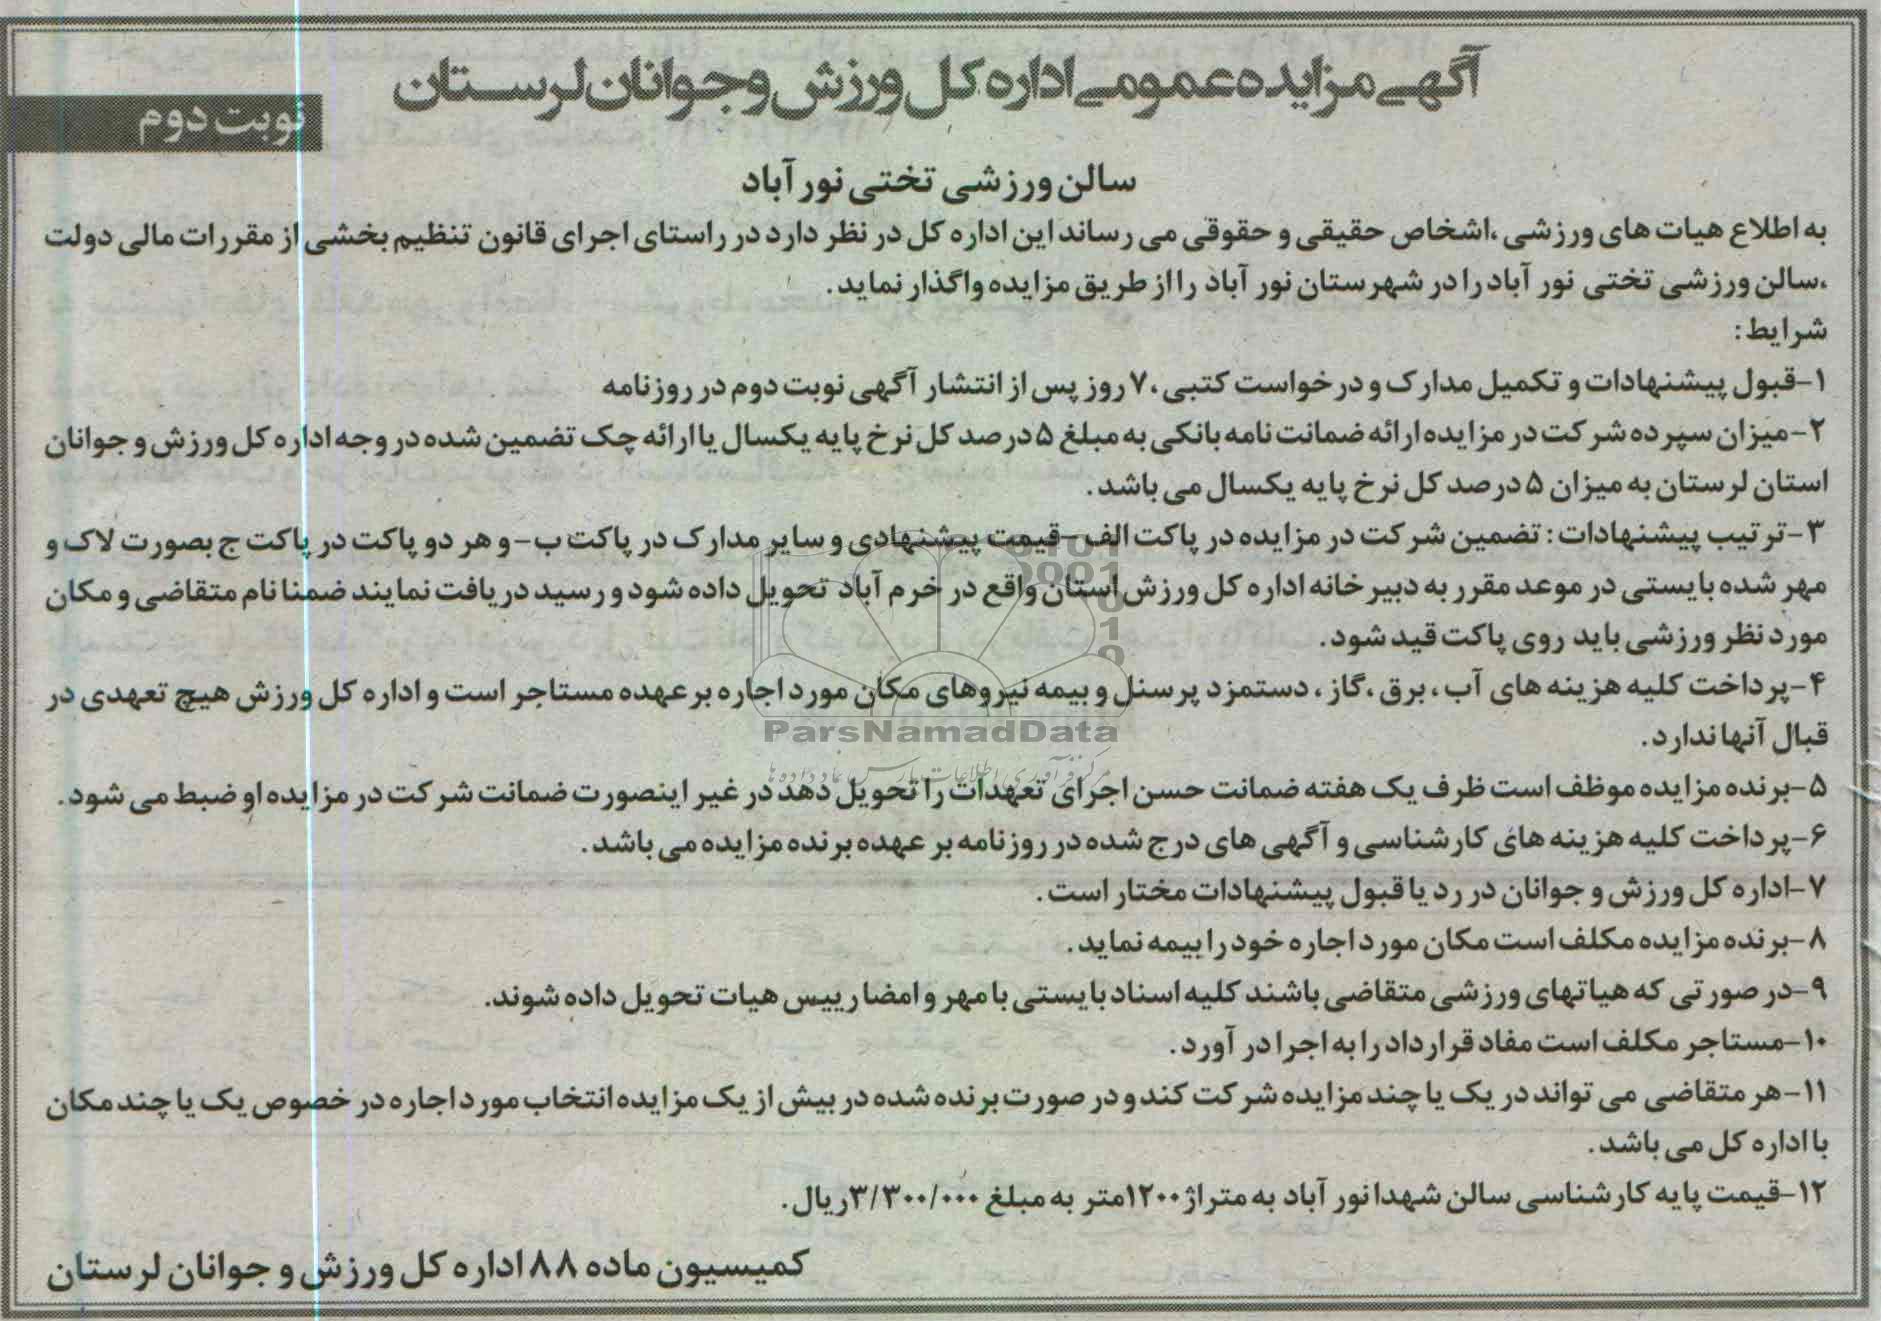 آگهی مزایده عمومی اداره کل ورزش و جوانان لرستان
نوبت دوم
سالن ورزشی تختی نور آباد
به اطلاع هیات های ورزشی ،اشخاص حقیقی و حقوقی می رساند این اداره کل در نظر دارد در راستای اجرای قانون تنظیم بخشی از مقررات مالی دولت
،سالن ورزشی تختی نور آباد را در شهرستان نور آباد را از طریق مزایده واگذار نماید.
شرایط:
۱-قبول پیشنهادات و تکمیل مدارک و درخواست کتبی ،۷ روز پس از انتشار آگهی نوبت دوم در روزنامه
۲-میزان سپرده شرکت در مزایده ارائه ضمانت نامه بانکی به مبلغ ۵ درصد کل نرخ پایه یکسال یا ارائه چک تضمین شده در وجه اداره کل ورزش و جوانان
استان لرستان به میزان ۵ درصد کل نرخ پایه یکسال می باشد.
۳-ترتیب پیشنهادات: تضمین شرکت در مزایده در پاکت الف-قیمت پیشنهادی و سایر مدارک در پاکت ب-و هر دو پاکت در پاکت ج بصورت لاک و
مهر شده بایستی در موعد مقرر به دبیرخانه اداره کل ورزش استان واقع در خرم آباد تحویل داده شود و رسید دریافت نمایند ضمنا نام متقاضی و مکان
مورد نظر ورزشی باید روی پاکت قید شود.
۴-پرداخت کلیه هزینه های آب، برق ،گاز ، دستمزد پرسنل و بیمه نیروهای مکان مورد اجاره بر عهده مستاجر است و اداره کل ورزش هیچ تعهدی در
قبال آنها ندارد.
ParsNamadData
مرکز فرآوری اطلاعات پارس نماد داده ها
۵-برنده مزایده موظف است ظرف یک هفته ضمانت حسن اجرای تعهدات را تحویل دهد در غیر اینصورت ضمانت شرکت در مزایده او ضبط می شود.
۶-پرداخت کلیه هزینه های کارشناسی و آگهی های درج شده در روزنامه بر عهده برنده مزایده می باشد.
۷-اداره کل ورزش و جوانان در رد یا قبول پیشنهادات مختار است.
۸-برنده مزایده مکلف است مکان مورد اجاره خود را بیمه نماید.
۹-در صورتی که هیاتهای ورزشی متقاضی باشند کلیه اسناد بایستی با مهر و امضا رییس هیات تحویل داده شوند.
۱۰-مستاجر مکلف است مفاد قرارداد را به اجرا در آورد.
۱۱-هر متقاضی می تواند در یک یا چند مزایده شرکت کند و در صورت برنده شده در بیش از یک مزایده انتخاب مورد اجاره در خصوص یک یا چند مکان
با اداره کل می باشد.
۱۲-قیمت پایه کارشناسی سالن شهدا نور آباد به متراژ ۱۲۰۰متر به مبلغ ۳/۳۰۰/۰۰۰ریال.
کمیسیون ماده ۸۸ اداره کل ورزش و جوانان لرستان